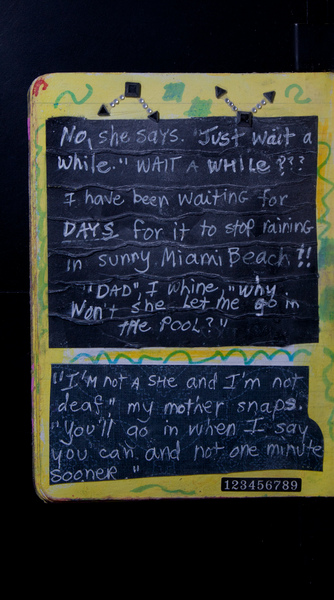 No, she says. "Just wait a
while." WAIT A WHILE???
I have been waiting for
DAYS for it to stop raining
in sunny Miami Beach!!
"DAD", I whine, "why
won't she let me go in
the POOL?"
"I'M NOT A SHE and I'm not
deaf," my mother snaps.
"You'll go in when I say
you can and not one minute
sooner."
123456789